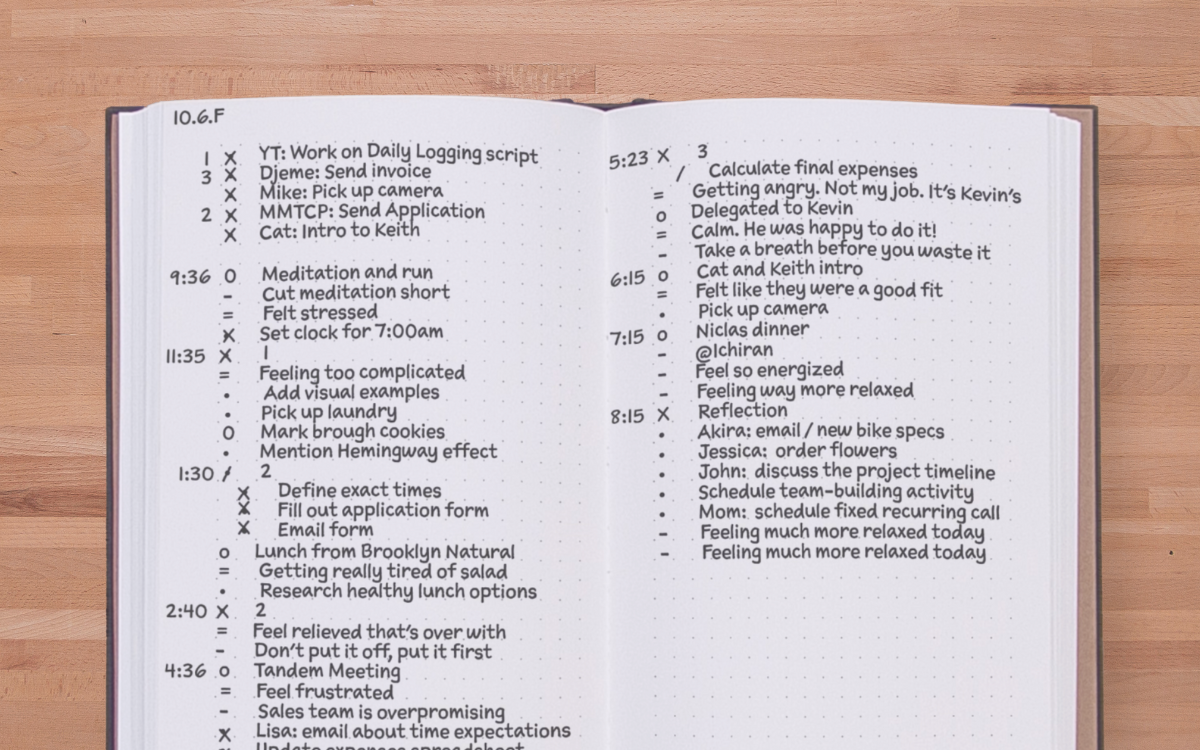 10.6.F
1 X YT: Work on Daily Logging script
3 X Djeme: Send invoice
X Mike: Pick up camera
2 X MMTCP: Send Application
X Cat: Intro to Keith
9:36 O Meditation and run
– Cut meditation short
= Felt stressed
X Set clock for 7:00am
11:35 X 1
= Feeling too complicated
• Add visual examples
• Pick up laundry
O Mark brough cookies
• Mention Hemingway effect
1:30 / 2
X Define exact times
X Fill out application form
X Email form
o Lunch from Brooklyn Natural
= Getting really tired of salad
• Research healthy lunch options
2:40 X 2
= Feel relieved that's over with
– Don't put it off, put it first
4:36 o Tandem Meeting
= Feel frustrated
– Sales team is overpromising
x Lisa: email about time expectations
Update expenses spreadsheet
5:23 X 3
/ Calculate final expenses
= Getting angry. Not my job. It's Kevin's
o Delegated to Kevin
= Calm. He was happy to do it!
– Take a breath before you waste it
6:15 o Cat and Keith intro
= Felt like they were a good fit
• Pick up camera
7:15 o Niclas dinner
– @Ichiran
– Feel so energized
– Feeling way more relaxed
8:15 X Reflection
• Akira: email / new bike specs
• Jessica: order flowers
• John: discuss the project timeline
• Schedule team-building activity
• Mom: schedule fixed recurring call
– Feeling much more relaxed today
– Feeling much more relaxed today